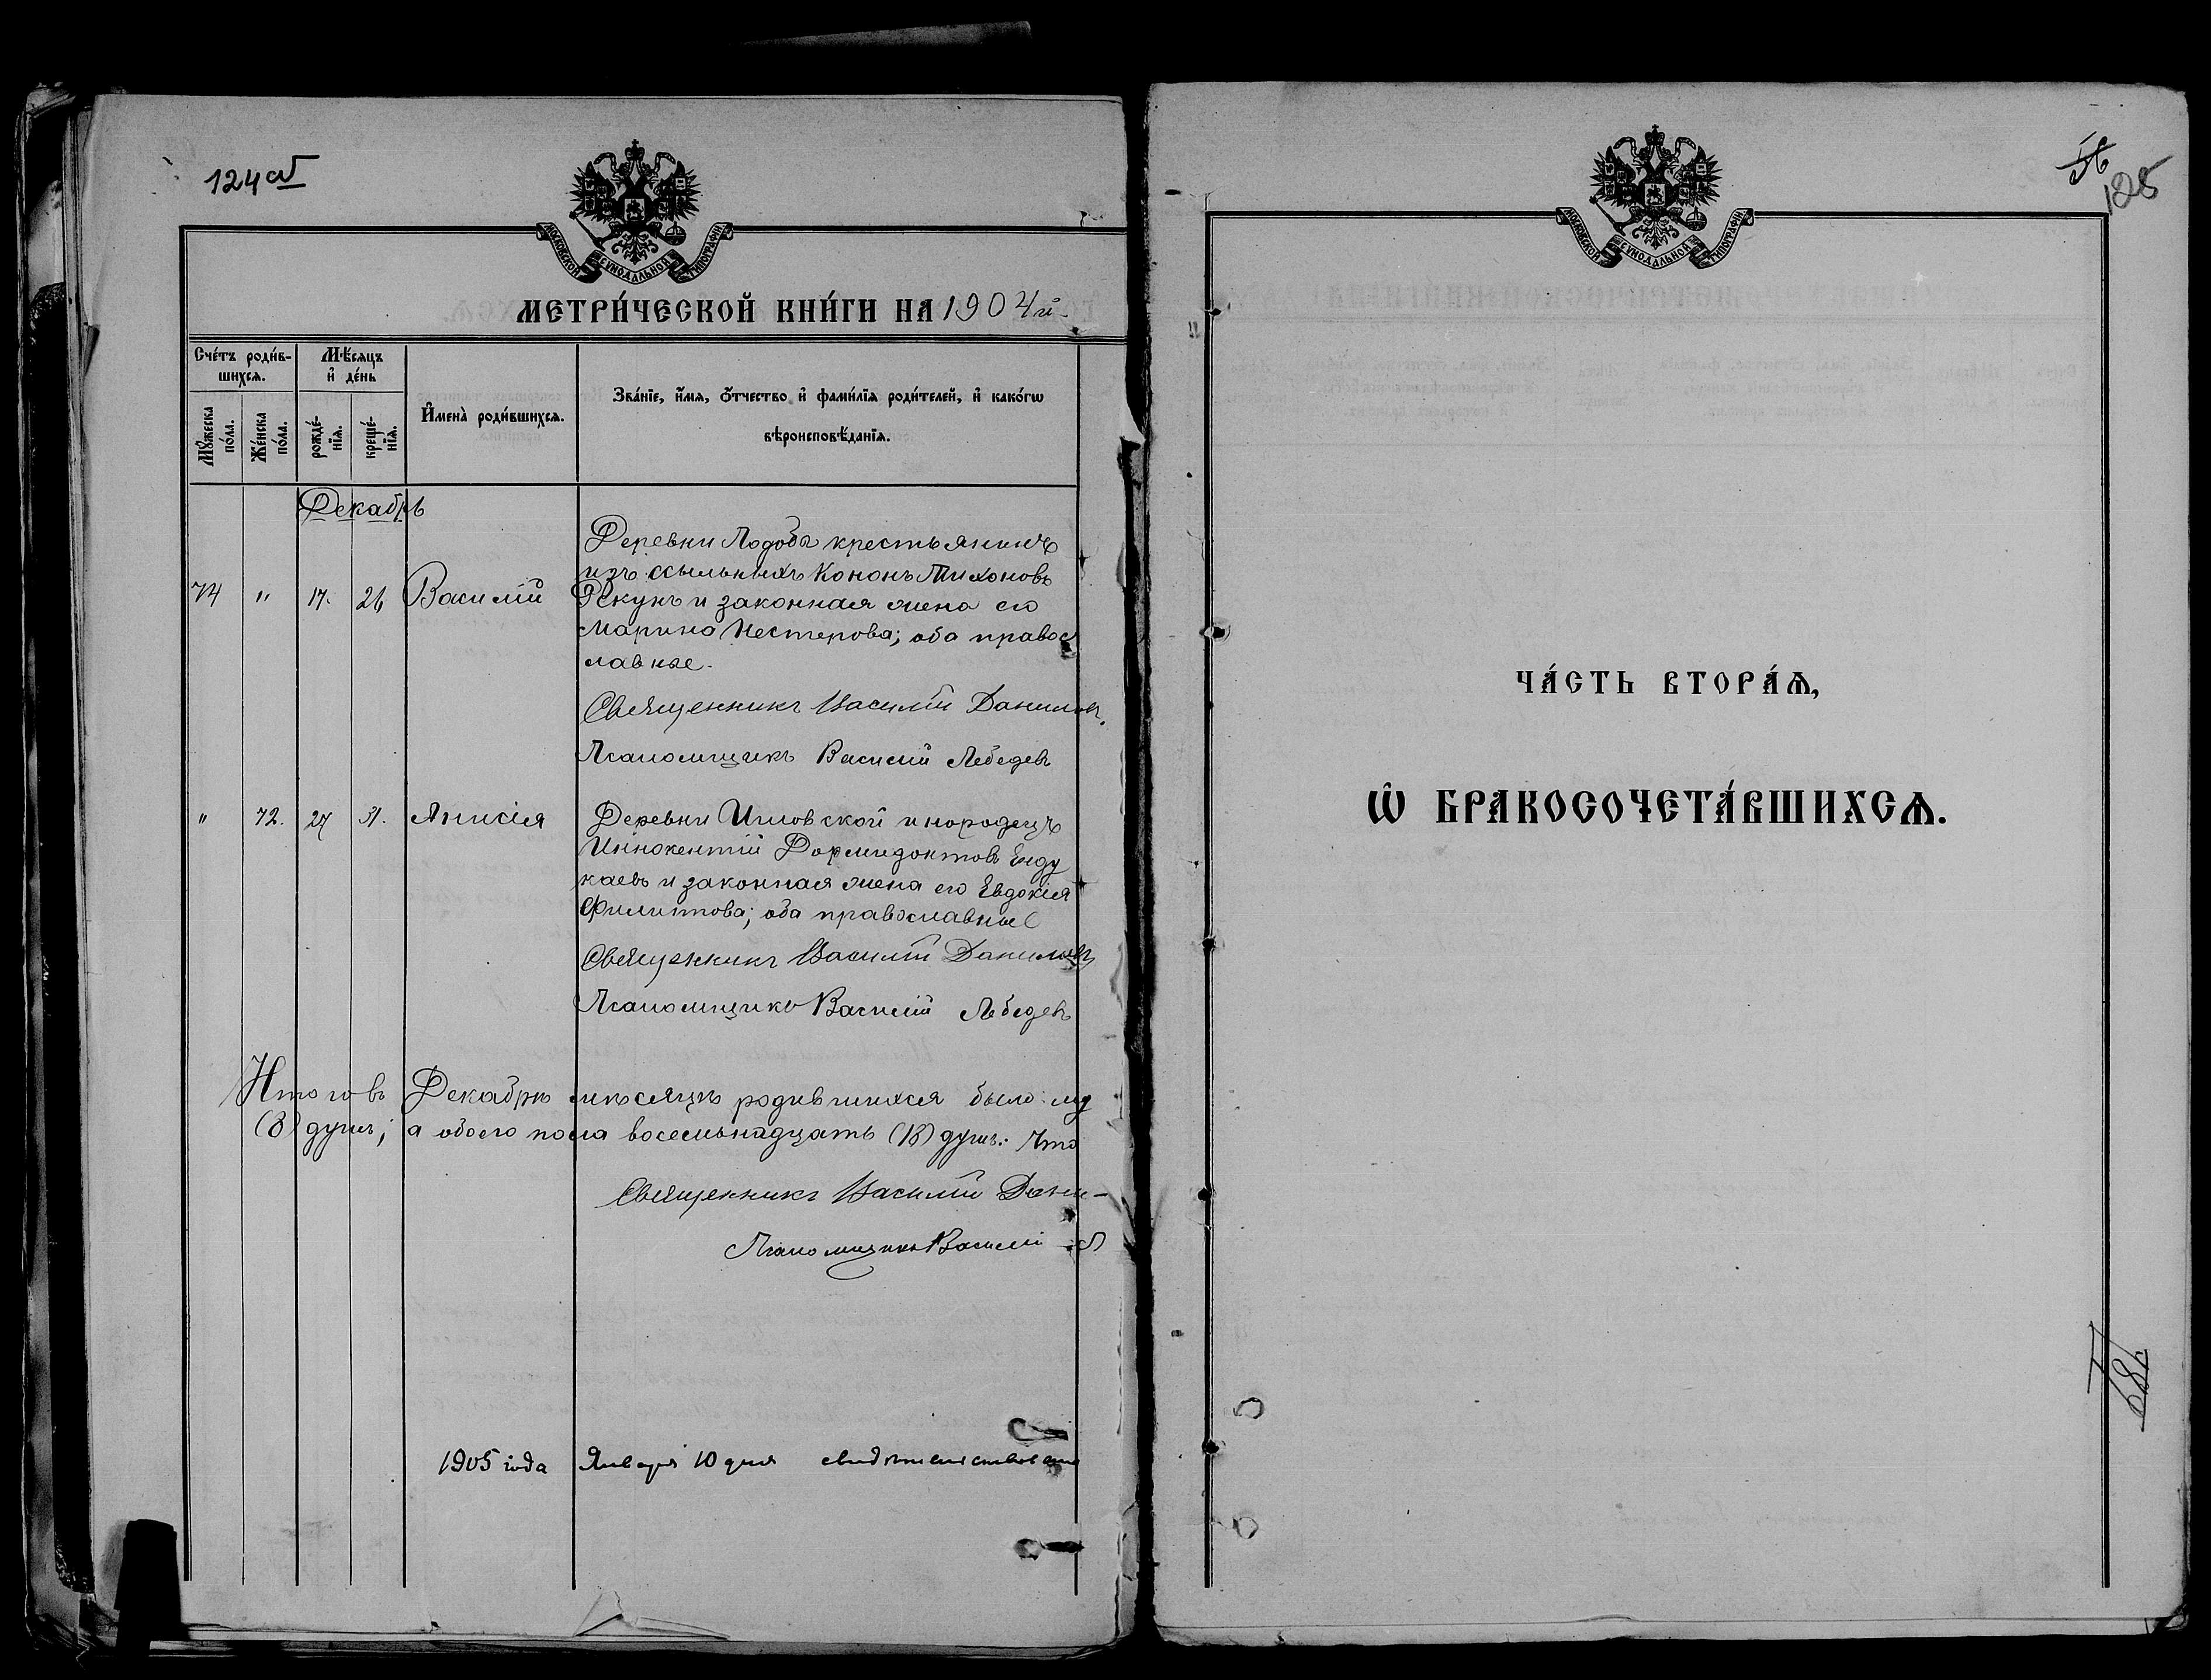 124 об
МОСКОВСКОЙ СѴНОДАЛЬНОЙ ТИПОГРАФІИ
МЕТРИ́ЧЕСКОЙ КНИ́ГИ НА 1904 й
Сче́тъ роди́в-
шихсѧ.
Мѣ́сяцъ
и҆ де́нь
Мꙋ́жеска
по́ла.
Же́нска
по́ла.
рожде́-
нїѧ.
креще́-
нїѧ.
И҆мена̀ роди́вшихсѧ.
Зва́нїе, и҆́мѧ, ѻ҆́тчество и҆ фами́лїѧ роди́телей, и҆ како́гѡ
вѣроисповѣ́данїѧ.
Декабрь
Деревни Подоба крестьянинъ
изъ ссыльныхъ Кононъ Тихоновъ
74 " 17. 26 Василій Рекунъ и законная жена его
Марина Нестерова; оба правос
лавные.
Священникъ Василій Даниловъ.
Псаломщикъ Василій Лебедевъ
" 72. 27 31. Анисія Деревни инородецъ
Иннокентій Дормидонтовъ Енду
каевъ и законная жена его Евдокія
Филиппова; оба православные
Священникъ Василій Даниловъ
Псаломщикъ Василій Лебедевъ
Итого въ Декабрѣ мѣсяцѣ родившихся было: му
(8) душъ; а обоего пола восемьнадцать (18) душъ: Что
Священникъ Василій Дани-
Псаломщикъ Василій Л
1905 года Января 10 дня свидѣтельствовалъ
56
125
МОСКОВСКОЙ СѴНОДАЛЬНОЙ ТИПОГРАФІИ
ЧА́СТЬ ВТОРА́Ѧ,
Ѡ БРАКОСОЧЕТА́ВШИХСѦ.